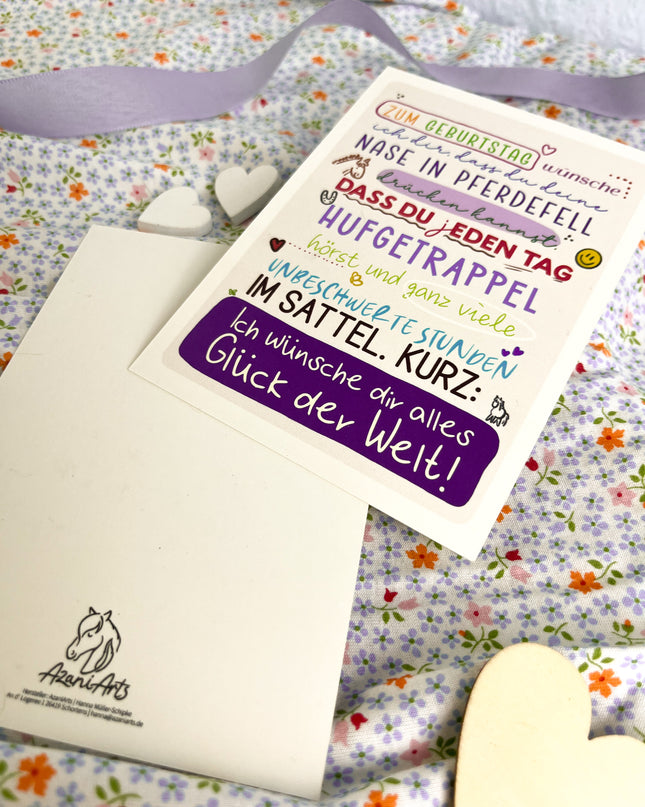 ZUM GEBURTSTAG wünsche
ich dir, dass du deine
NASE IN PFERDEFELL
drücken kannst
DASS DU JEDEN TAG
HUFGETRAPPEL
hörst und ganz viele
UNBESCHWERTE STUNDEN
IM SATTEL. KURZ:
Ich wünsche dir alles
Glück der Welt!
AzaniArts
Hersteller: AzaniArts | Hanna Müller-Schipke
An d' Logerei 1 26419 Schortens | hanna@azaniarts.de